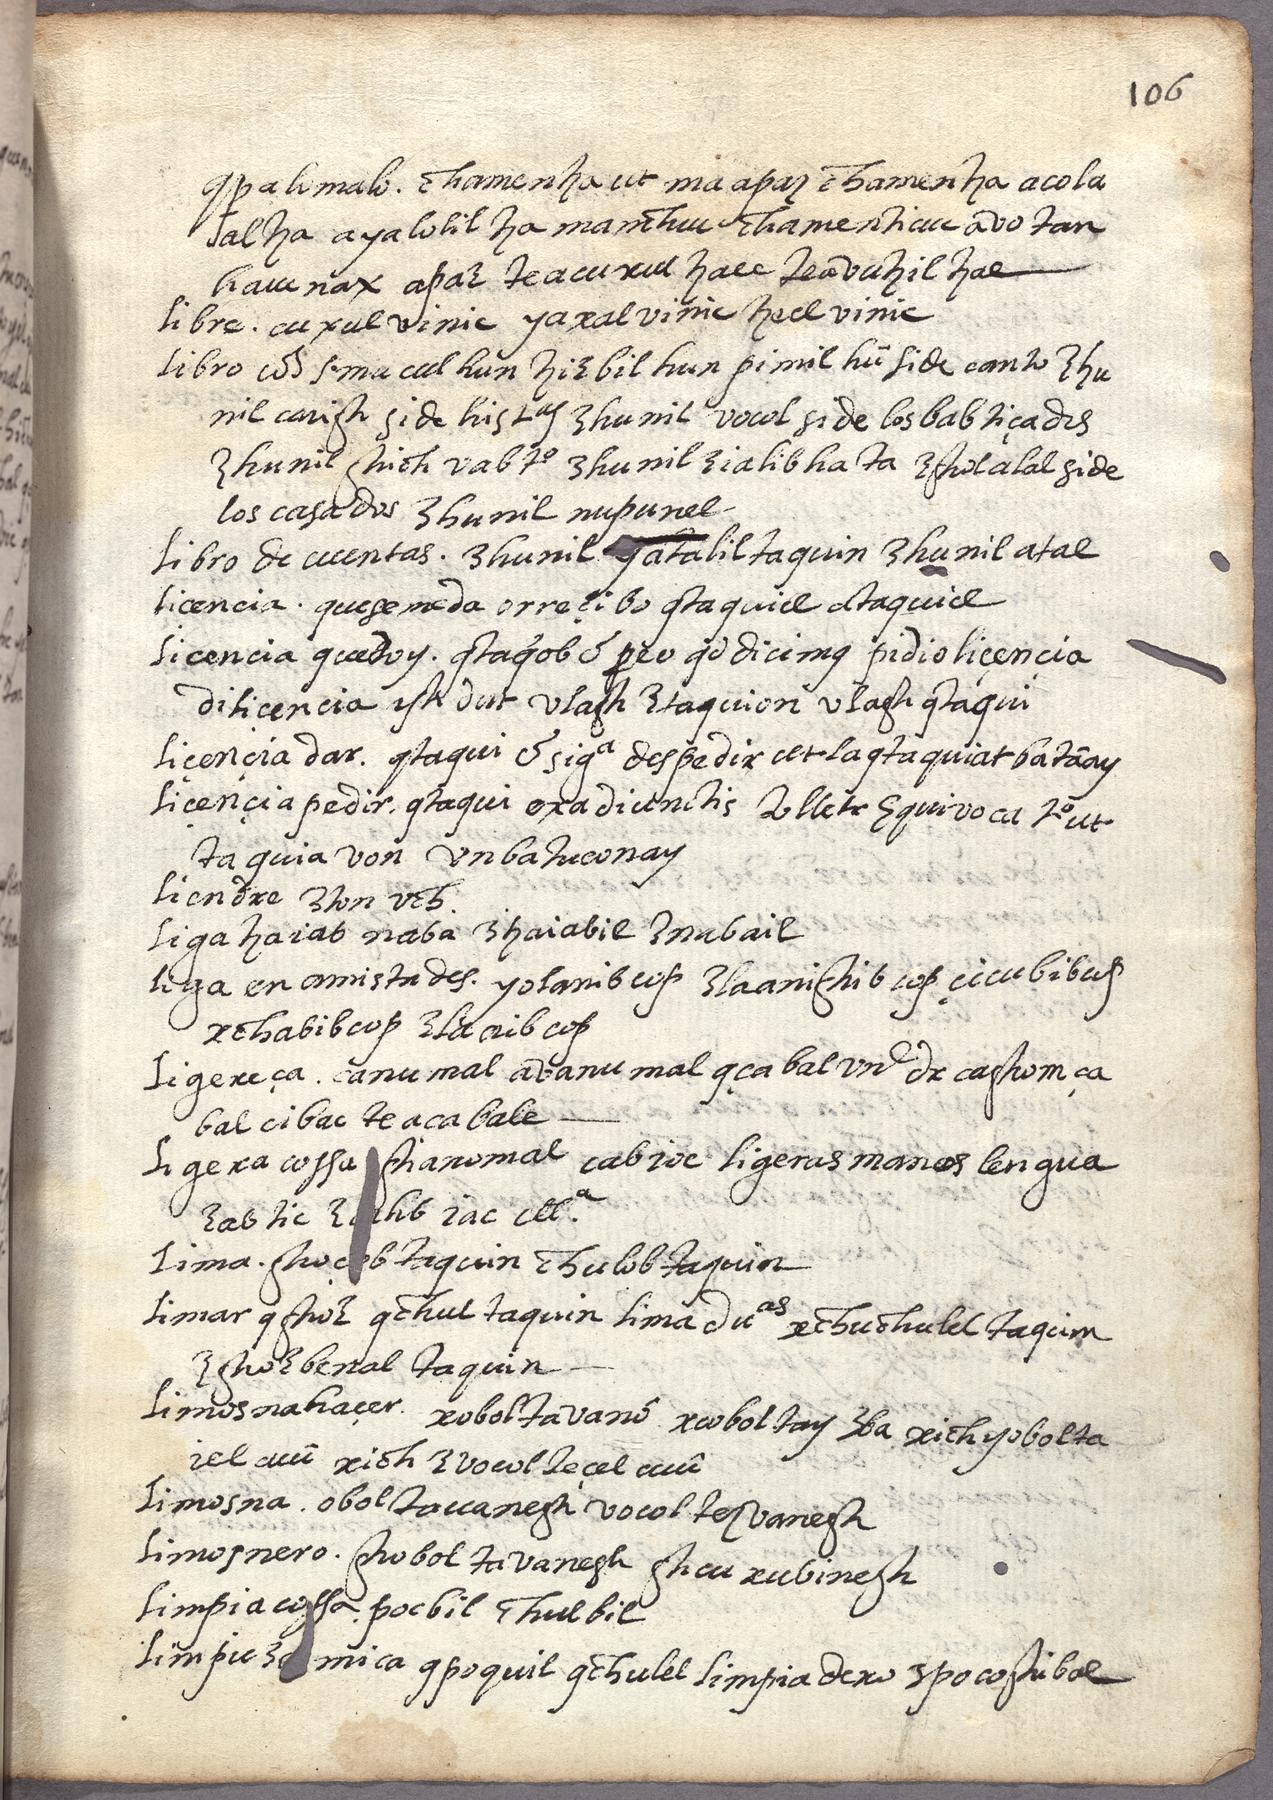 106
qpalomalo. chamenhaut ma apaz chamenha acola
alha ayalolil ha manchuc chamenticuc avo tan
hauc nax apaz teacuxul haec teavuhil hae
libre. cuxul vinic yaxal vinic heel vinic
libro cõd hun hizbil hun pimil hũ si de canto zhu
nil cuigh si de histas zhunil vocol si de los babtiçados
zhunil ghich vabto zhunil zialibhata zgholalal si de
los casados zhunil nupunel
libro de cuentas. zhunil yatalil taquin zhunil atae
liçencia. que se me da orreçibo qtaquiel ctaquiel
liçencia que doy. qtaqob pidio liçençia
diliçencia vlagh ztaquion vlagh qtaqui
liçençia dar. qtaqui siga despedir ut laqtaquiat batãay
liçençia pedir. qtaqui exadiunctis equivoca to ut
taquia von vnbatuconay
liendre zton vch.
liga haiab naba zhaiabil znabail
liga en amistades. yolanibcop zlaanighib cop çicubibcop
xchabibcop zlacib cop
ligereça. canumal avanumal qçabal vnde dr caghom ça
bal cibac teacabale
ligera cossa ghanomal cab ioc ligeras manos lengua
zab tic iac
lima. taquin chulob taquin
limar qghoz qchul taquin limaduas xchuchulel taquin
zghozbenal taquin
limosna haçer. xoboltavanõ xcoboltay zba xichyobolta
iel cuũ xich zvocolteçel cuũ
limosna. oboltauanegh vocoltezvanegh
limosnero. ghoboltavanegh ghcuxubinegh
limpia cossa. pocbil chulbil
limpie mica qpoquil qchulel limpiadero zpocoghibal